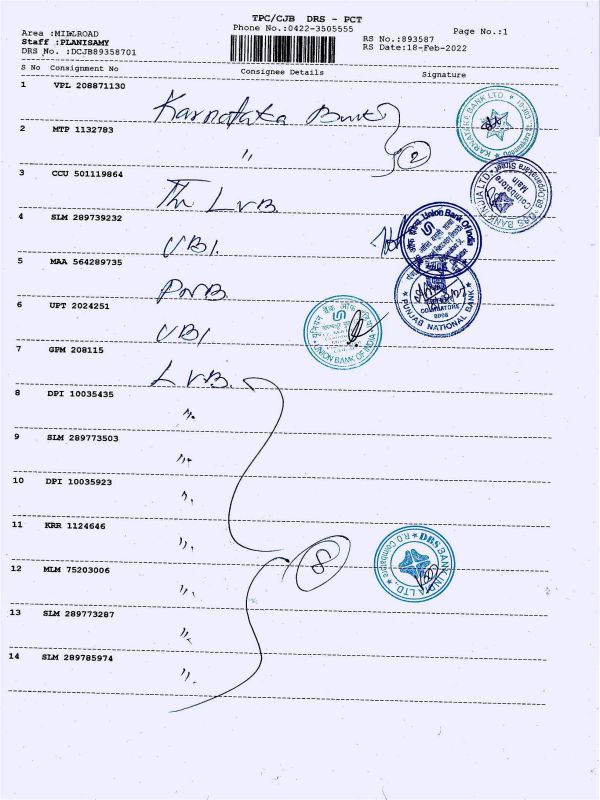 TPC/CJB DRS - PCT
Phone No.:0422-3505555
Page No.:1
Area :MILLROAD
Staff :PLANISAMY
DRS No. :DCJB89358701
RS No.:893587
RS Date:18-Feb-2022
S No Consignment No Consignee Details Signature
1 VPL 208871130 Karnataka Bank
2 MTP 1132783 "
2
3 CCU 501119864 The LVB
4 SLM 289739232 UBI
5 MAA 564289735 PNB
6 UPT 2024251 UBI
7 GPM 208115 LVB
8 DPI 10035435 "
9 SLM 289773503 "
10 DPI 10035923 "
11 KRR 1124646 "
8
12 MLM 75203006 "
13 SLM 289773287 "
14 SLM 289785974 "
KARNATAKA BANK LTD.
DBS BANK INDIA LTD.
Coimbatore
Main
Union Bank Of India
PUNJAB NATIONAL BANK
COIMBATORE
यूनियन बैंक ऑफ इंडिया
UNION BANK OF INDIA
DBS BANK INDIA LTD.
R O Coimbatore